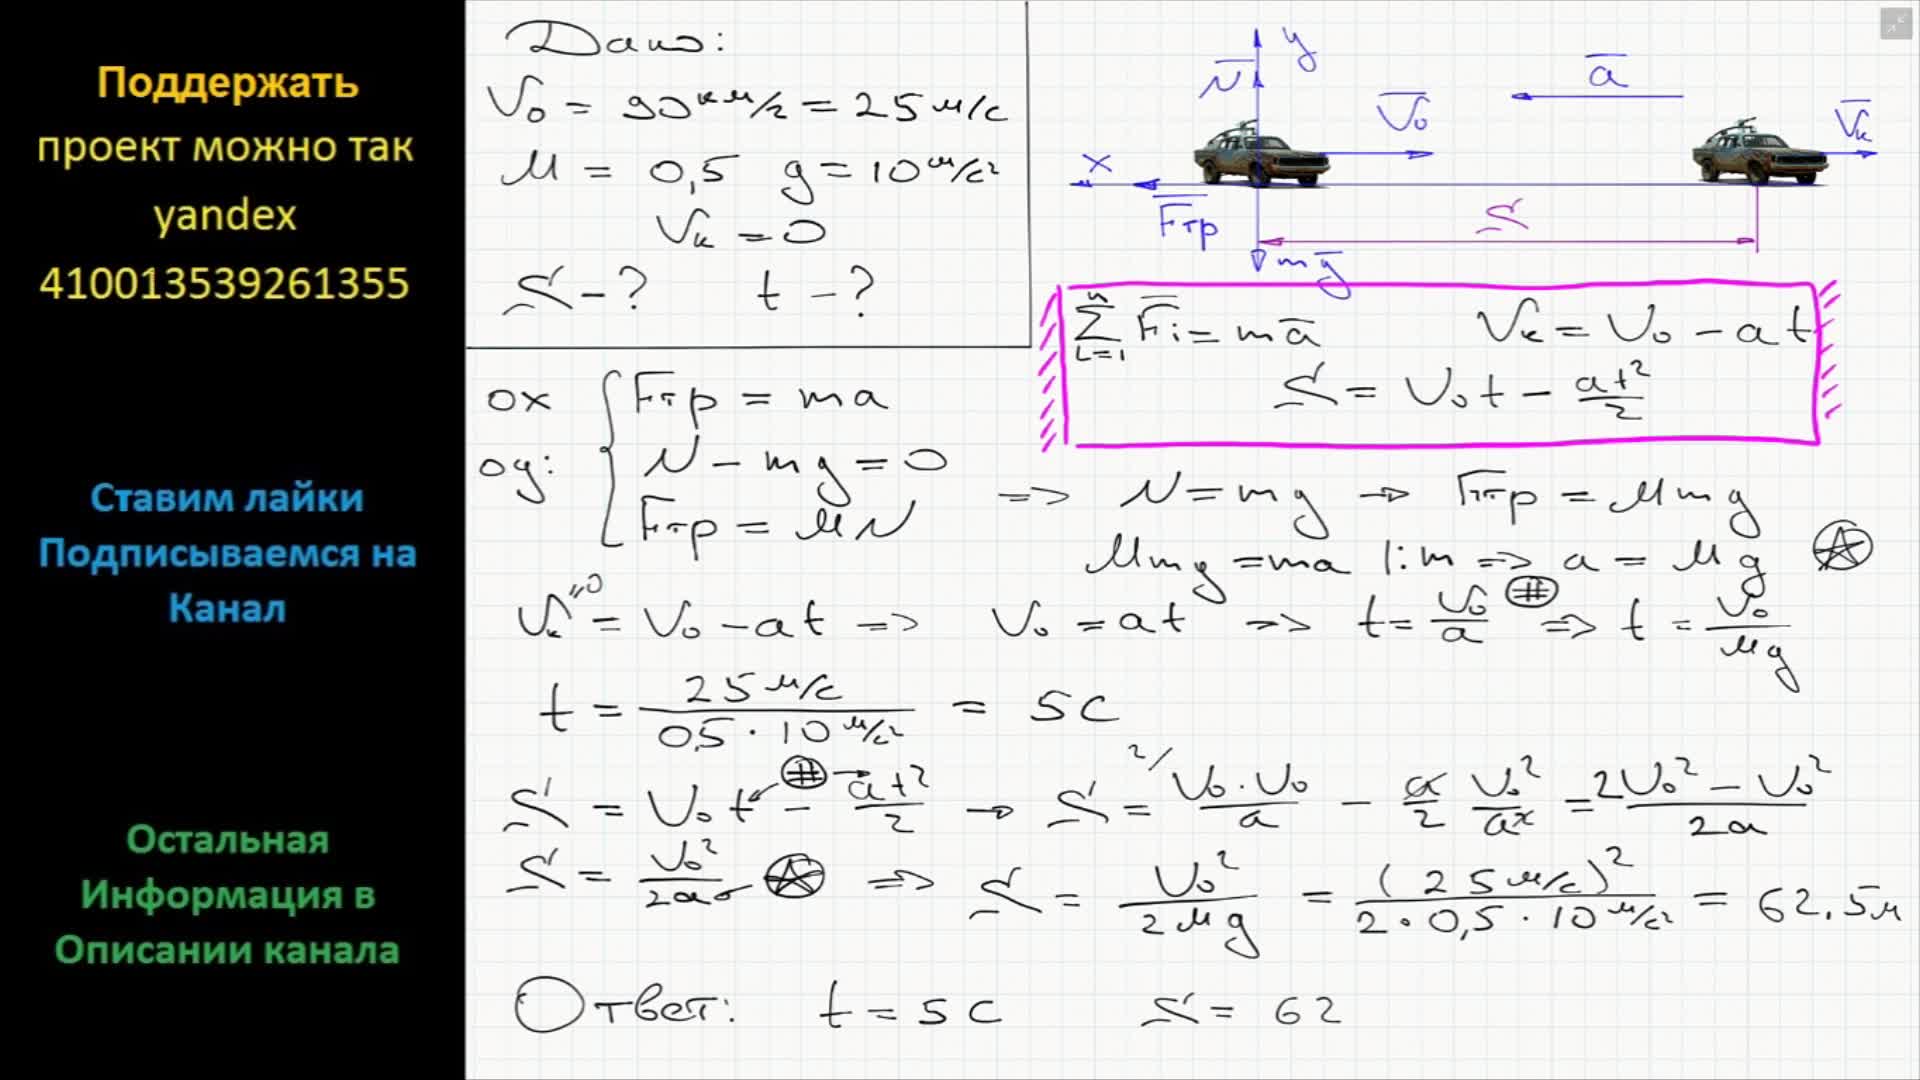 Поддержать
проект можно так
yandex
410013539261355
Ставим лайки
Подписываемся на
Канал
Остальная
Информация в
Описании канала
Дано:
V₀ = 90 км/ч = 25 м/с
μ = 0,5 g = 10 м/с²
Vₖ = 0
S - ? t - ?
y
N̅
V̅₀
a̅
V̅ₖ
x
F̅тр
S
mg̅
∑ⁿᵢ₌₁ F̅i = ma̅ Vₖ = V₀ - at
S = V₀t - at²/2
ox Fтр = ma
oy: N - mg = 0
Fтр = μN => N = mg → Fтр = μmg
μmg = ma |:m => a = μg
Vₖ = V₀ - at => V₀ = at => t = V₀/a # => t = V₀/μg
=0
t = 25 м/с / 0,5 · 10 м/с² = 5 с
S = V₀t - at²/2 → S = ²/ V₀·V₀/a - a/2 V₀²/a² = 2V₀² - V₀²/2a
#
S = V₀²/2a => S = V₀²/2μg = (25 м/с)²/2·0,5·10 м/с² = 62.5м
Ответ: t = 5 с S = 62